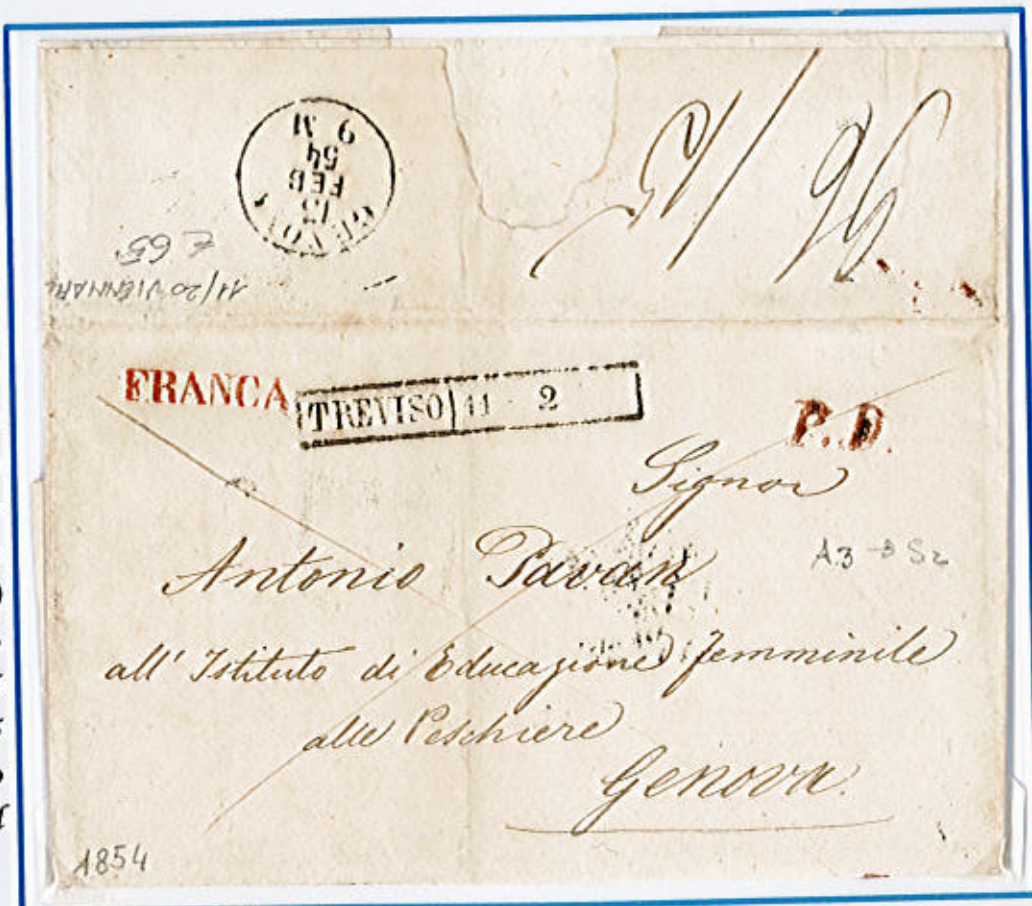 GENOVA
13
FEB
54
9 M
96/15
€ 65
11/20 VIENNARI
FRANCA
TREVISO 11 2
P.D.
Signor
Antonio Pavan
A3 → S2
all' Istituto di Educazione femminile
alle Peschiere
Genova.
1854